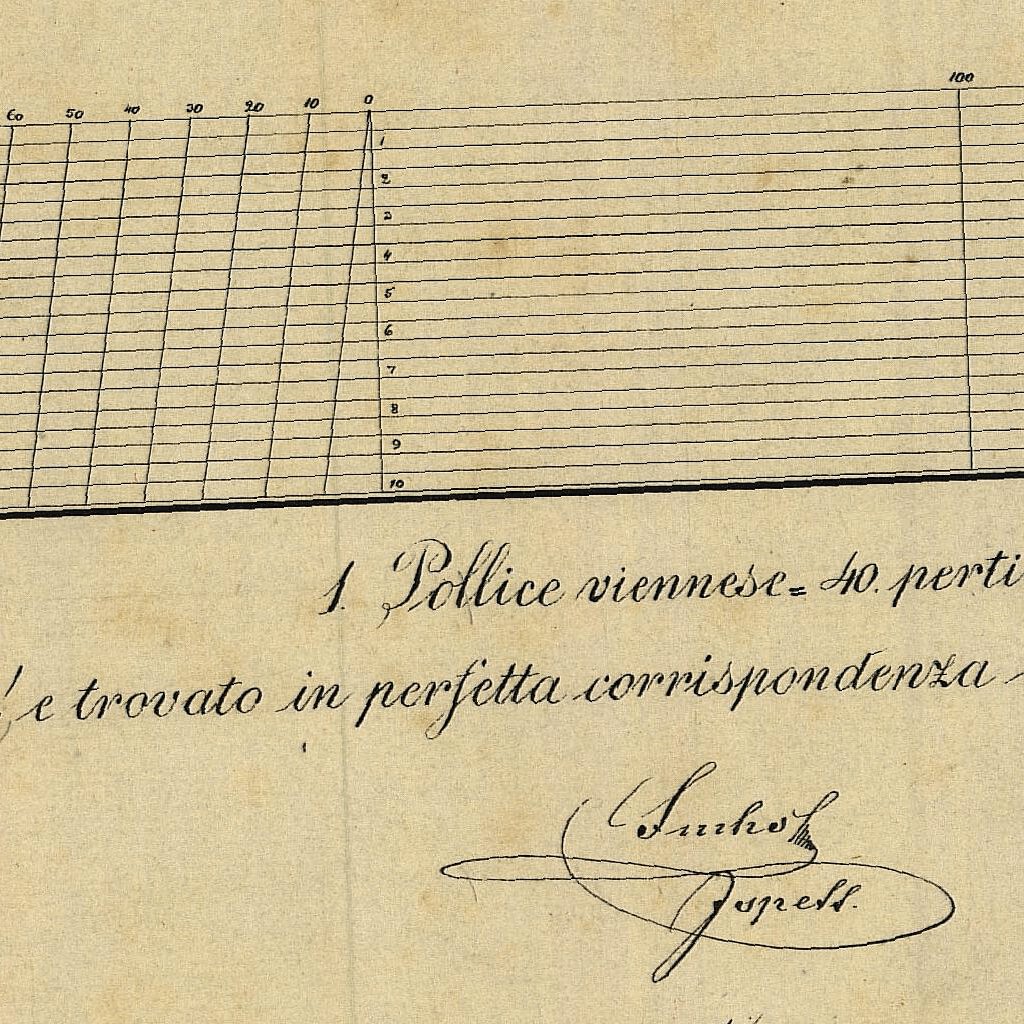 60 50 40 30 20 10 0 100
1
2
3
4
5
6
7
8
9
10
1. Pollice viennese = 40. perti
e trovato in perfetta corrispondenza